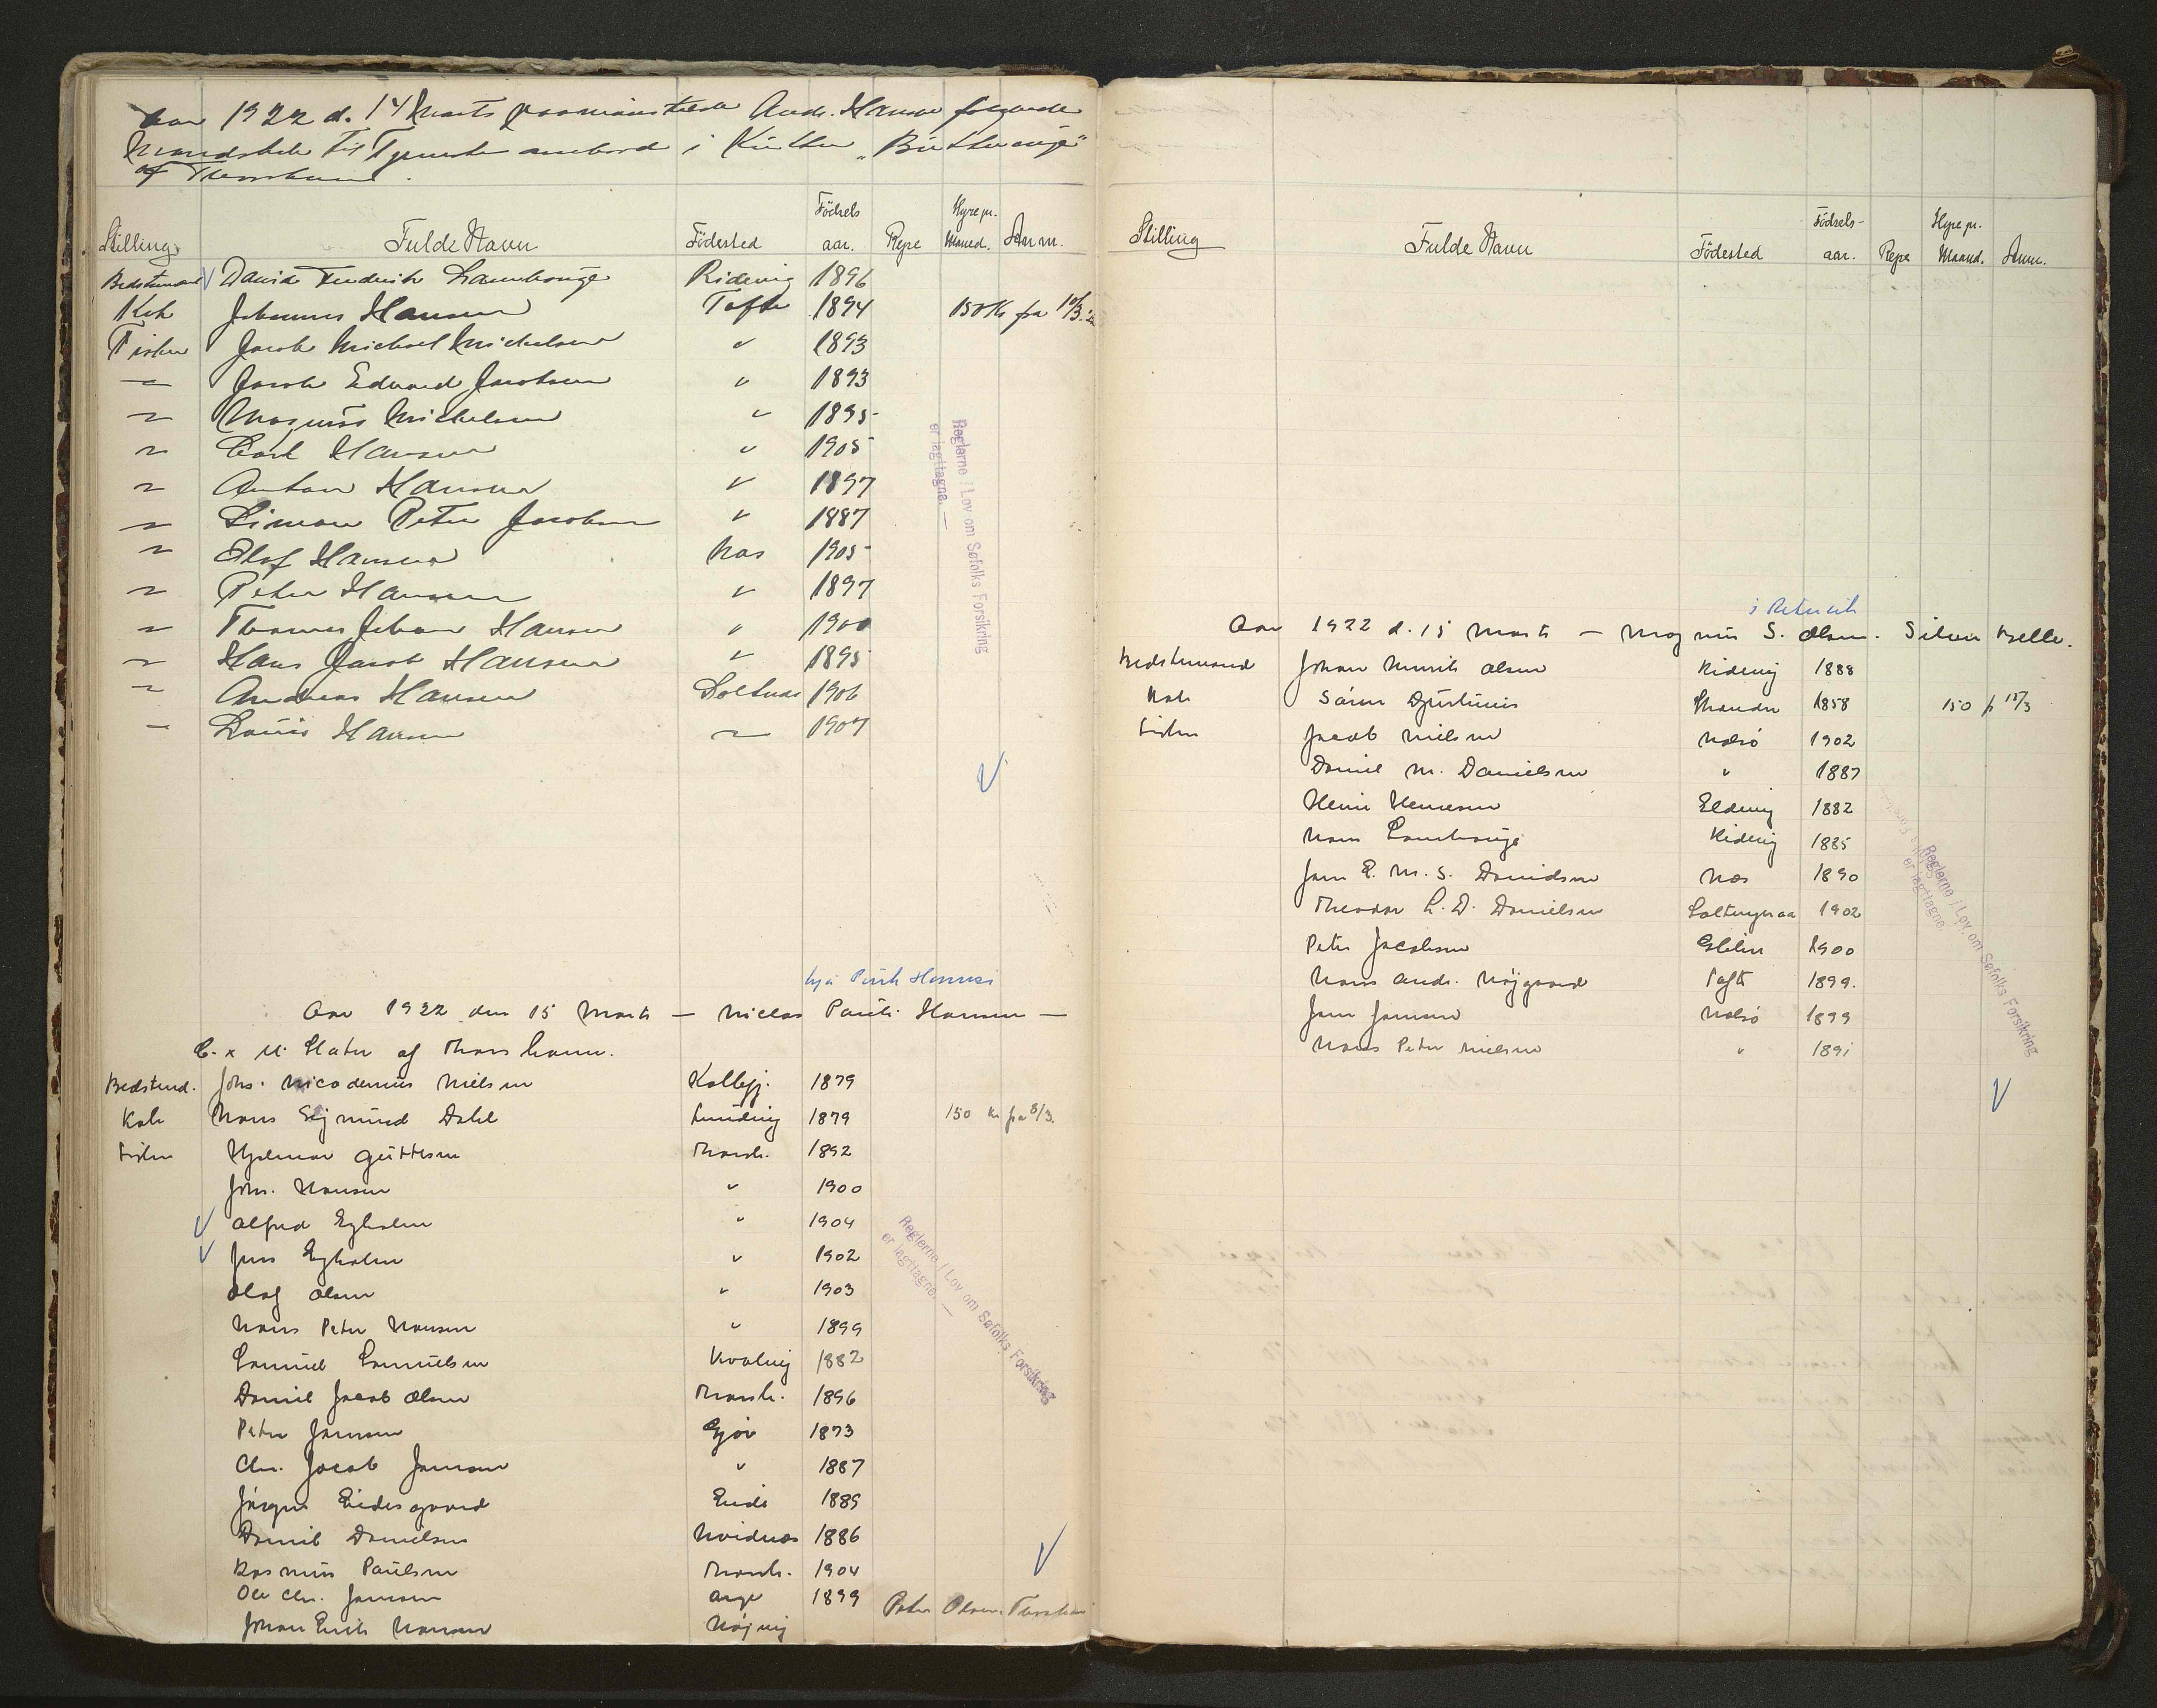 Aar 1922 d. 14 Marts paamønstrede Andr. Hansen følgende
Mandskab til Tjeneste ombord i Kutter „Buttercup"
af Thorshavn.
Stilling Fulde Navn Fødested Fødsels aar. Rejse Hyre pr. Maaned. Anm.
Bedstemand David Frederik Lamhauge Ridevig 1896
Kok Johannes Hansen Tofte 1894 150 Kr fra 10/3.22
Fisker Jacob Michael Michelsen " 1893
— Jacob Edward Jacobsen " 1893
— Magnus Michelsen " 1895
— Carl Hansen " 1905
— Anton Hansen " 1897
— Simon Peter Jacobsen " 1887
— Olof Hansen Næs 1905
— Peter Hansen " 1897
— Thomas Johan Hansen " 1900
— Hans Jacob Hansen " 1895
— Andreas Hansen 1906
— Louis Hansen — 1907
Reglerne i Lov om Søfolks Forsikring
er iagttagne. —
hjá
Aar 1922 den 15 Marts — Niclas Pauli Hansen —
af Thorshavn.
Bedstmd. Johs. Nicodemus Nielsen Kolbfj. 1879
Kok Hans Sigmund Dahl 1879 150 Kr fra 8/3.
Fisker Hjalmar Guttesen Thorsh. 1892
Johs. Hansen " 1900
Alfred Egholm " 1904
Jens Egholm " 1902
Olaf Olsen " 1903
Hans Peter Hansen " 1899
Samuel Samuelsen Kvalvig 1882
Daniel Jacob Olsen Thorsh. 1896
Peter Joensen Gjov 1873
Chr. Jacob Joensen " 1887
Jørgen Eidesgaard Eide 1889
Daniel Danielsen Hvidnæs 1886
Rasmus Paulsen Thorsh. 1904
Ole Chr. Joensen Arge 1899 Peter Olsen
Johan Erik Hansen Højvig
Reglerne i Lov om Søfolks Forsikring
er iagttagne. —
Stilling Fulde Navn Fødested Fødsels- aar. Rejse Hyre pr. Maaned. Anm.
Aar 1922 d. 15 Marts — Magnus S. Olsen. Silver Belle.
Bedstemand Johan Henrik Olsen Ridevig 1888
Kok Sámm Djurhuus 1858 150 fr 15/3
Fisker Jacob Nielsen Nolsø 1902
Daniel M. Danielsen " 1887
Heini Heinesen Eldevig 1882
Hans Lamhauge Ridevig 1885
Joen E. M. S. Davidsen Næs 1890
Theodor L. D. Danielsen Saltangeraa 1902
Peter Jacobsen Glibre 1900
Hans Andr. Højgaard Tofte 1899.
Joen Joensen Nolsø 1899
Hans Peter Nielsen " 1891
Reglerne i Lov om Søfolks Forsikring
er iagttagne.